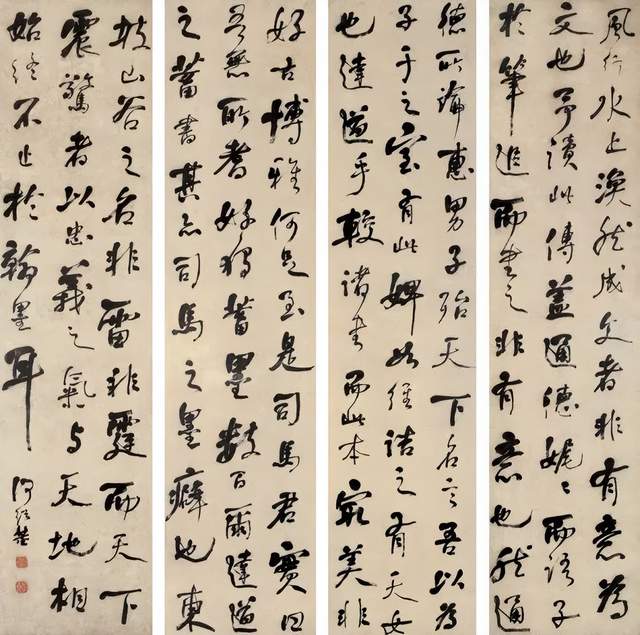 風行水上渙然成文者非有意為
文也予讀此傳蓋通德娓〻而語子
於筆追而書之非有意也然通
德所論惠男子殆天下名言吾以為
子于之室有此婢如維詰之有天女
也達道手較諸書而此本最美非
好古博雅何足至是司馬君實曰
吾無所耆好獨蓄墨數百爾達道
之蓄書其亦司馬之墨癖也東
坡山谷之名非雷非霆而天下
震驚者以忠義之氣与天地相
始終不止於翰墨耳 何紹基